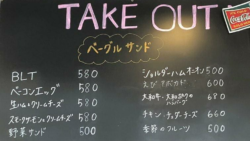 TAKE OUT
Coca-Cola
ベーグルサンド
BLT 580
ベーコンエッグ 580
生ハムクリームチーズ 580
スモークサーモンクリームチーズ 580
野菜サンド 500
ショルダーハムオニオン 500
えびアボカド 600
大和牛・大和ポークのハンバーグ 680
チキン・チェダーチーズ 660
季節のフルーツ 500